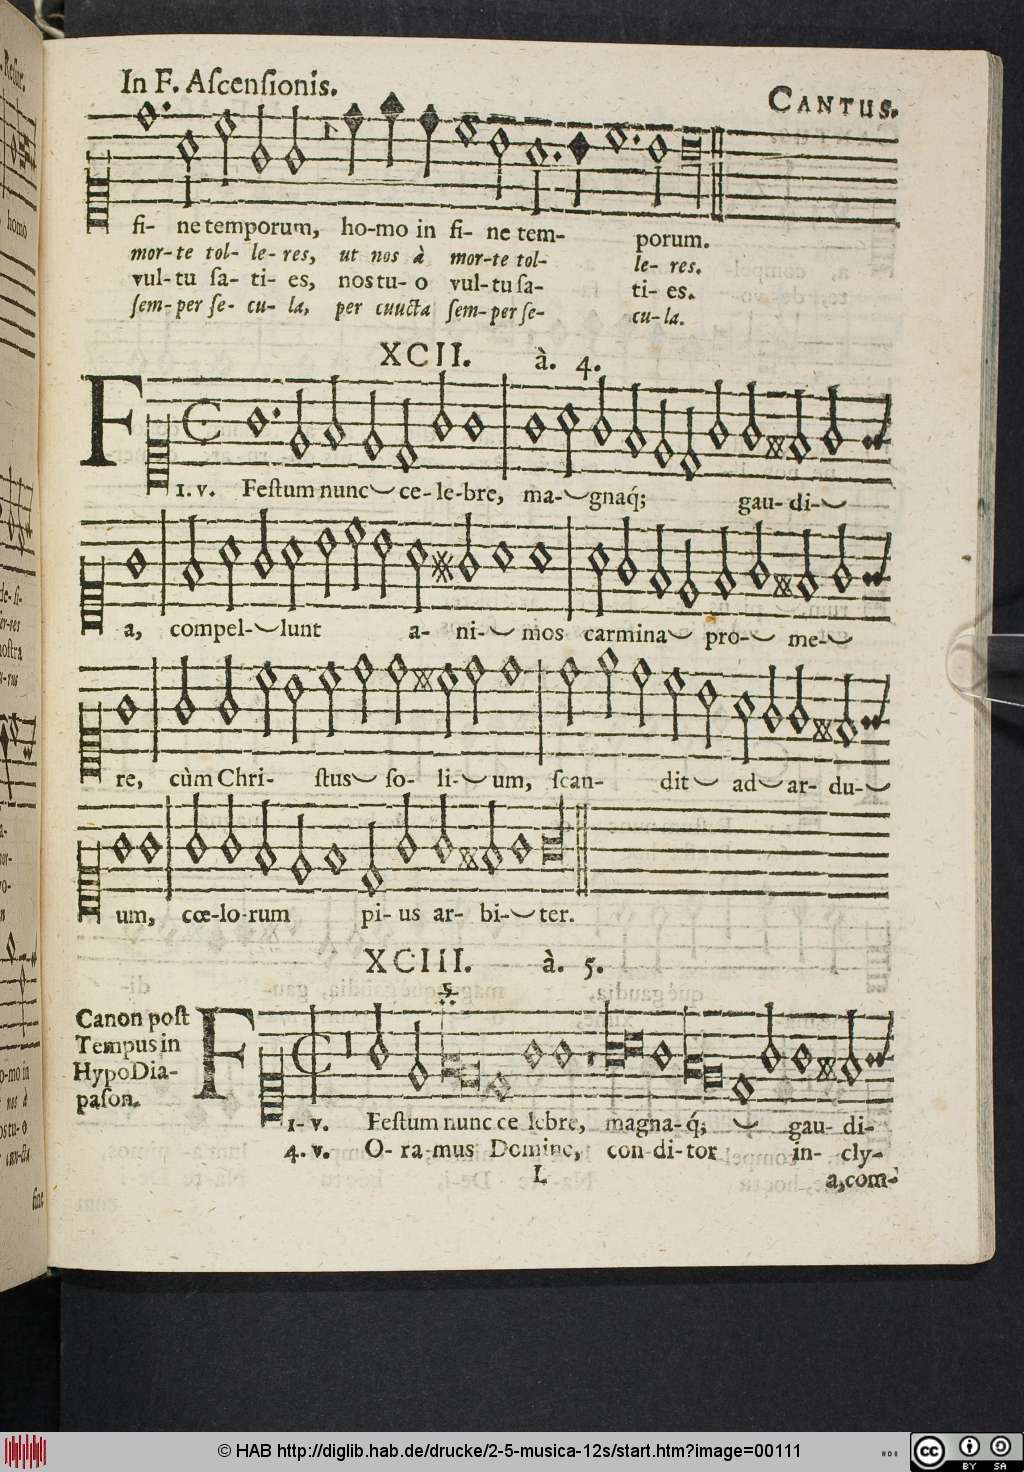 In F. Aſcenſionis.
CANTUS.
fi- ne temporum, ho-mo in fi- ne tem- porum.
mor-te tol- le- res, ut nos à mor-te tol- le- res.
vul-tu ſa- ti- es, nos tu- o vul-tu ſa- ti- es.
ſem-per ſe- cu- la, per cuucta ſem-per ſe- cu-la.
XCII. à. 4.
F
1. v. Feſtum nunc ce-le-bre, ma- gnaq́; gau-di-
a, compel- lunt a- ni- mos carmina pro- me-
re, cùm Chri- ſtus ſo- li- um, ſcan- dit ad ar- du-
um, cœ-lo-rum pi- us ar- bi- ter.
XCIII. à. 5.
5
Canon poſt
Tempus in
HypoDia-
paſon.
F
1- v. Feſtum nunc ce lebre, magna-q́; gau- di-
4. v. O- ra-mus Domine, con-di-tor in- cly-
L a,com-
homo
© HAB http://diglib.hab.de/drucke/2-5-musica-12s/start.htm?image=00111
cc BY SA